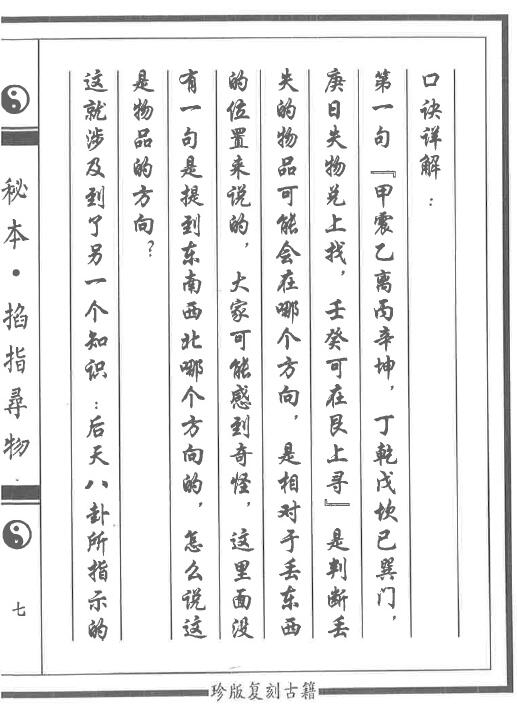 口诀详解：
第一句『甲震乙离丙辛坤，丁乾戊坎己巽门，
庚日失物兑上找，壬癸可在艮上寻』是判断丢
失的物品可能会在哪个方向，是相对于丢东西
的位置来说的，大家可能感到奇怪，这里面没
有一句是提到东南西北哪个方向的，怎么说这
是物品的方向？
这就涉及到了另一个知识：后天八卦所指示的
秘本·掐指尋物·
七
珍版复刻古籍